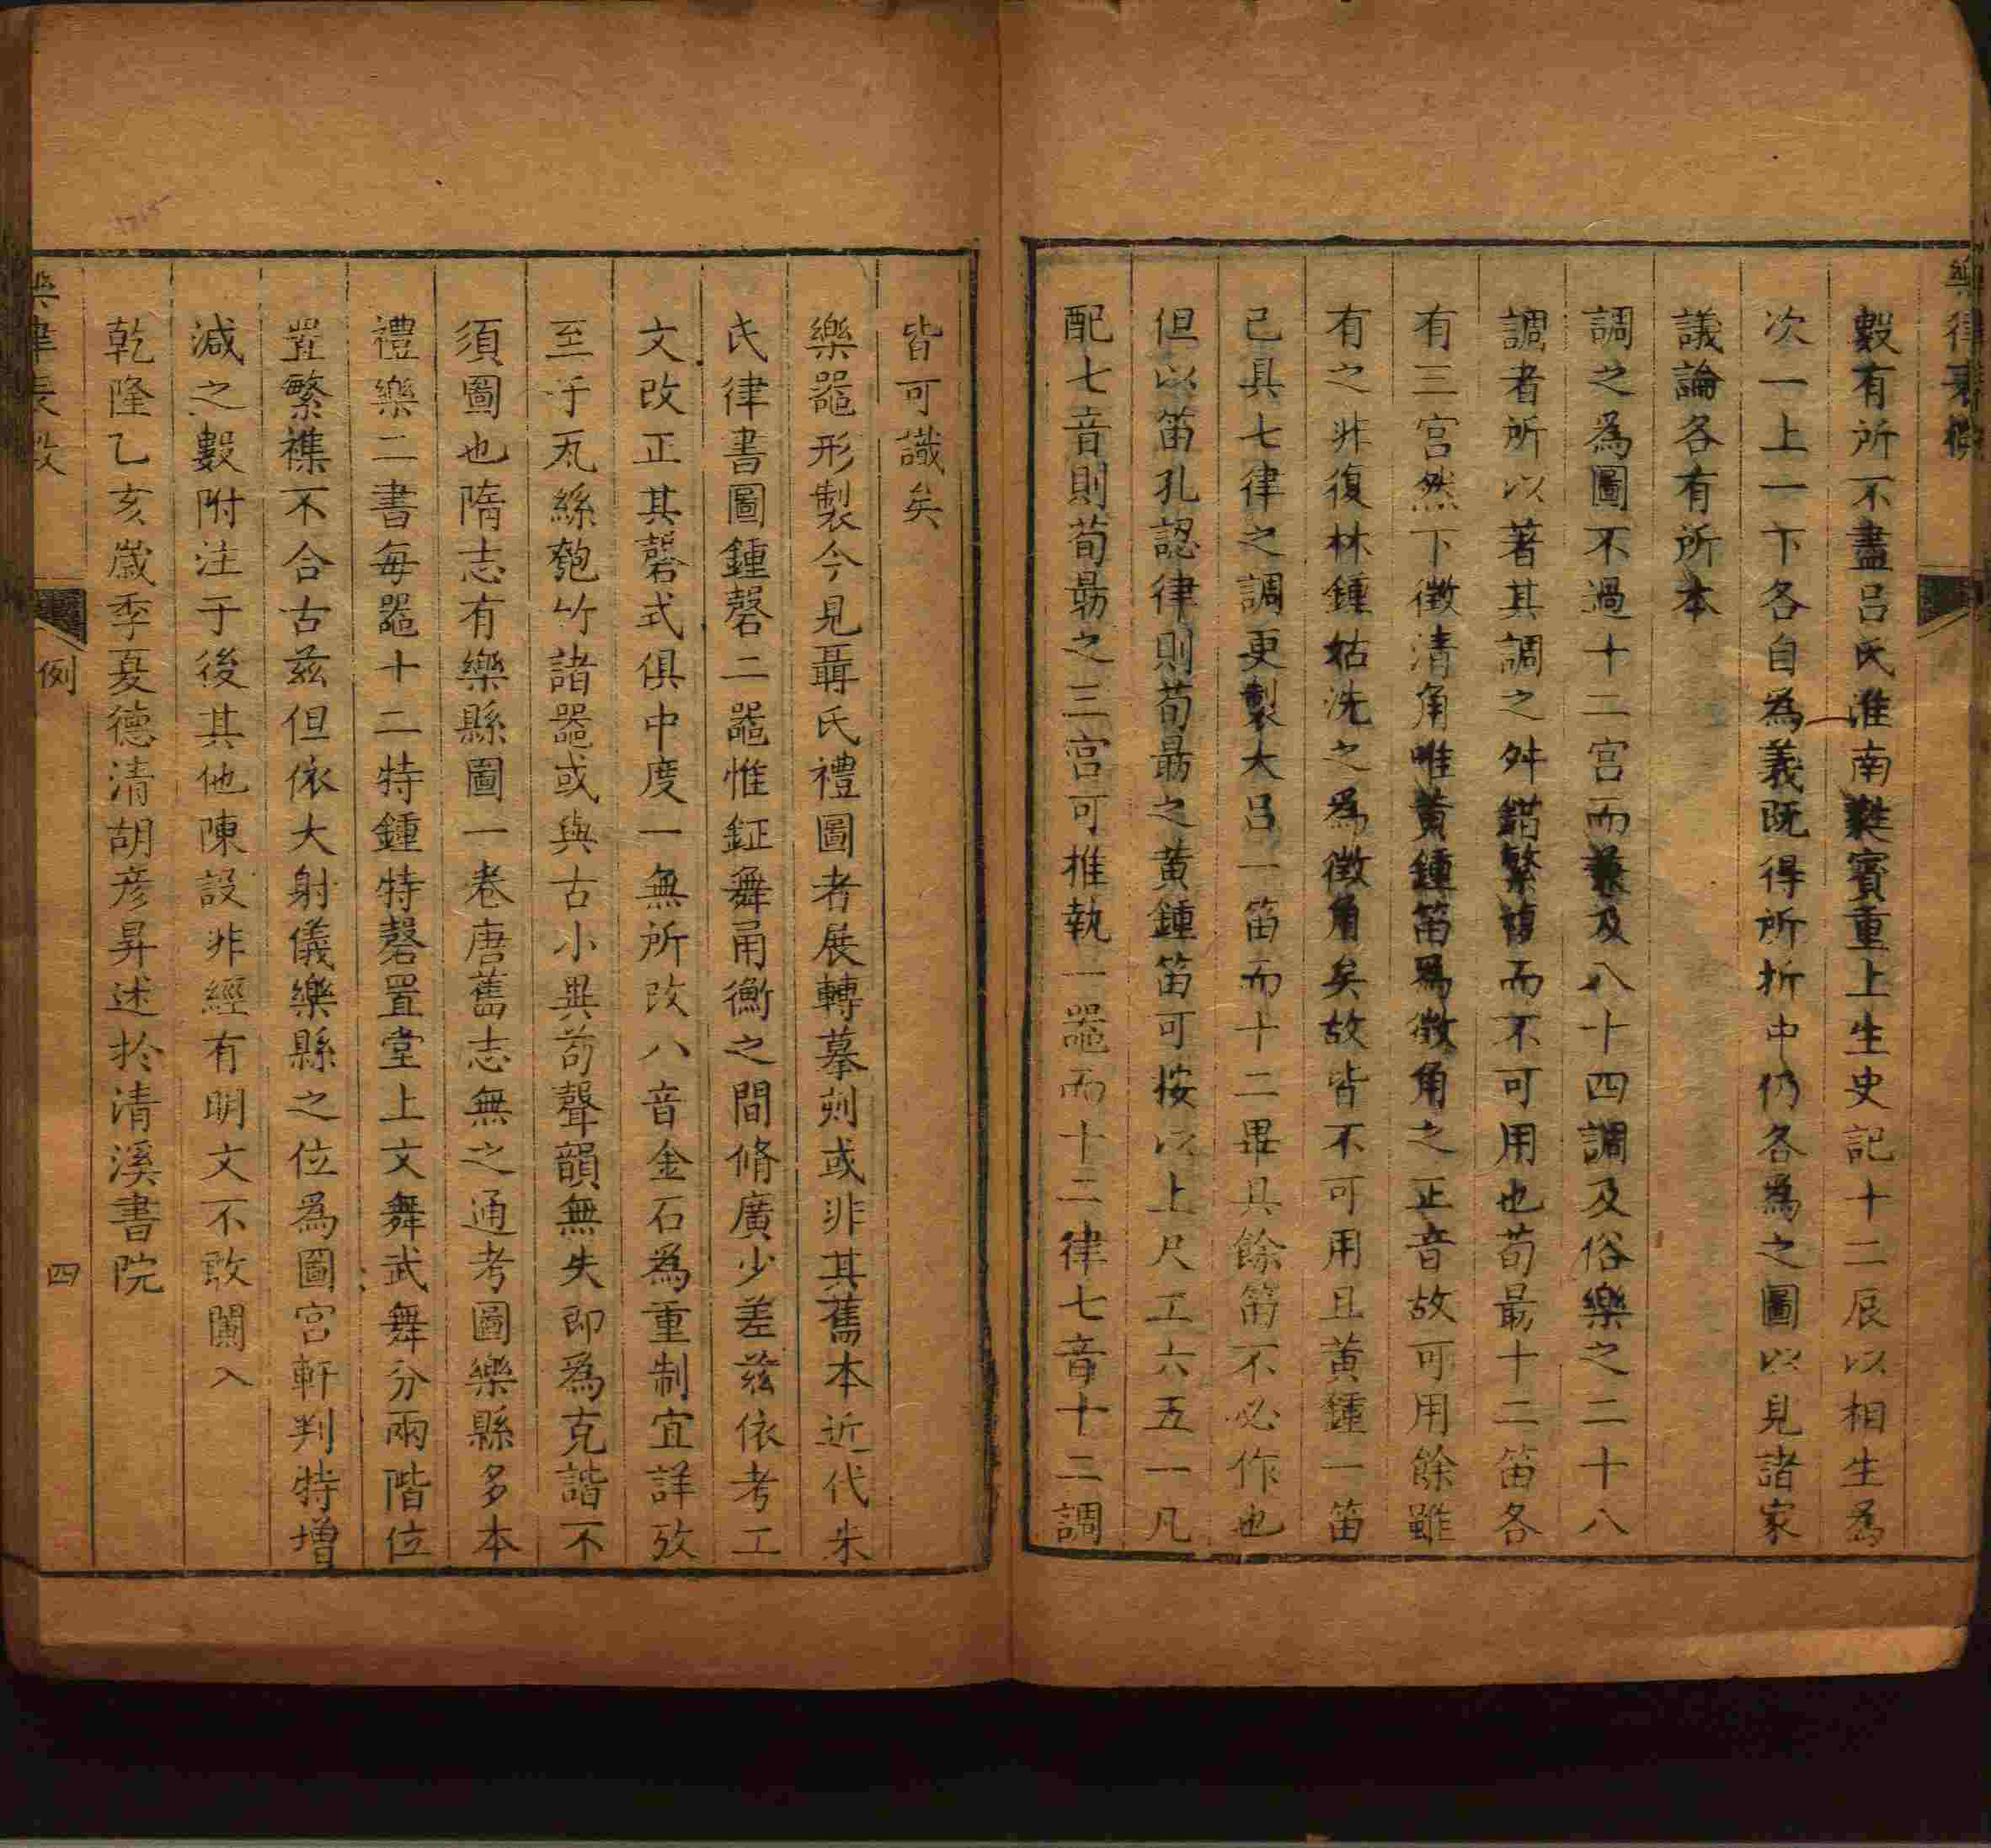 樂律表微
數有所不盡呂氏淮南蕤賓重上生史記十二辰以相生爲
次一上一下各自爲義既得所折中仍各爲之圖以見諸家
議論各有所本
調之爲圖不過十二宫而兼及八十四調及俗樂之二十八
調者所以著其調之舛錯繁複而不可用也荀勗十二笛各
有三宫然下徵清角唯黄鍾笛爲徵角之正音故可用餘雖
有之非復林鍾姑洗之爲徵角矣故皆不可用且黄鍾一笛
已具七律之調更製大呂一笛而十二畢具餘笛不必作也
但以笛孔認律則荀勗之黄鍾笛可按以上尺工六五一凡
配七音則荀勗之三宫可推執一器而十二律七音十二調
皆可識矣
樂器形製今見聶氏禮圖者展轉摹刻或非其舊本近代朱
氏律書圖鍾磬二器惟鉦舞甬衡之間脩廣少差兹依考工
文改正其磬式俱中度一無所改八音金石爲重制宜詳攷
至于瓦絲匏竹諸器或與古小異苟聲韻無失即爲克諧不
須圖也隋志有樂縣圖一卷唐舊志無之通考圖樂縣多本
禮樂二書每器十二特鍾特磬置堂上文舞武舞分兩階位
置繁襍不合古兹但依大射儀樂縣之位爲圖宫軒判特增
減之數附注于後其他陳設非經有明文不敢闌入
乾隆乙亥歲季夏德清胡彦昇述於清溪書院
樂律表微
例
四